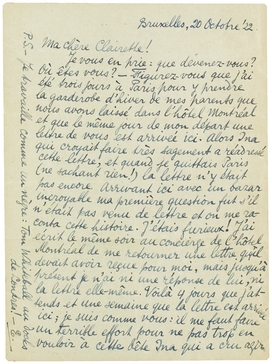 Bruxelles, 20 Octobre '22
Ma chère Clairette!
Je vous en prie: que devenez-vous?
Où êtes-vous? — Figurez-vous que j'ai
été trois jours à Paris pour y prendre
la garderobe d'hiver de mes parents que
nous avons laissé dans l'hôtel Montréal
et que le même jour de mon départ une
lettre de vous est arrivée ici. Alors Ina
qui croyait faire très sagement a réadressé
cette lettre, et quand je quittais Paris
(ne sachant rien!) la lettre n'y était
pas encore. Arrivant ici avec un bazar
incroyable ma première question fut s'il
n'était pas venu de lettre et on me ra-
conta cette histoire. J'étais furieux! J'ai
écrit le même soir au concierge de l'hôtel
Montréal de me retourner une lettre qu'il
devait avoir reçue pour moi, mais jusqu'à
présent je n'ai ni une réponse de lui, ni
la lettre elle-même. Voilà 4 jours que j'at-
tends et une semaine que la lettre est arrivée
ici; je suis comme vous: il me faut faire
un terrible effort pour ne pas trop en
vouloir à cette bête Ina qui a cru agir
P.S. — Je travaille comme un nègre: Tom
de Londres.